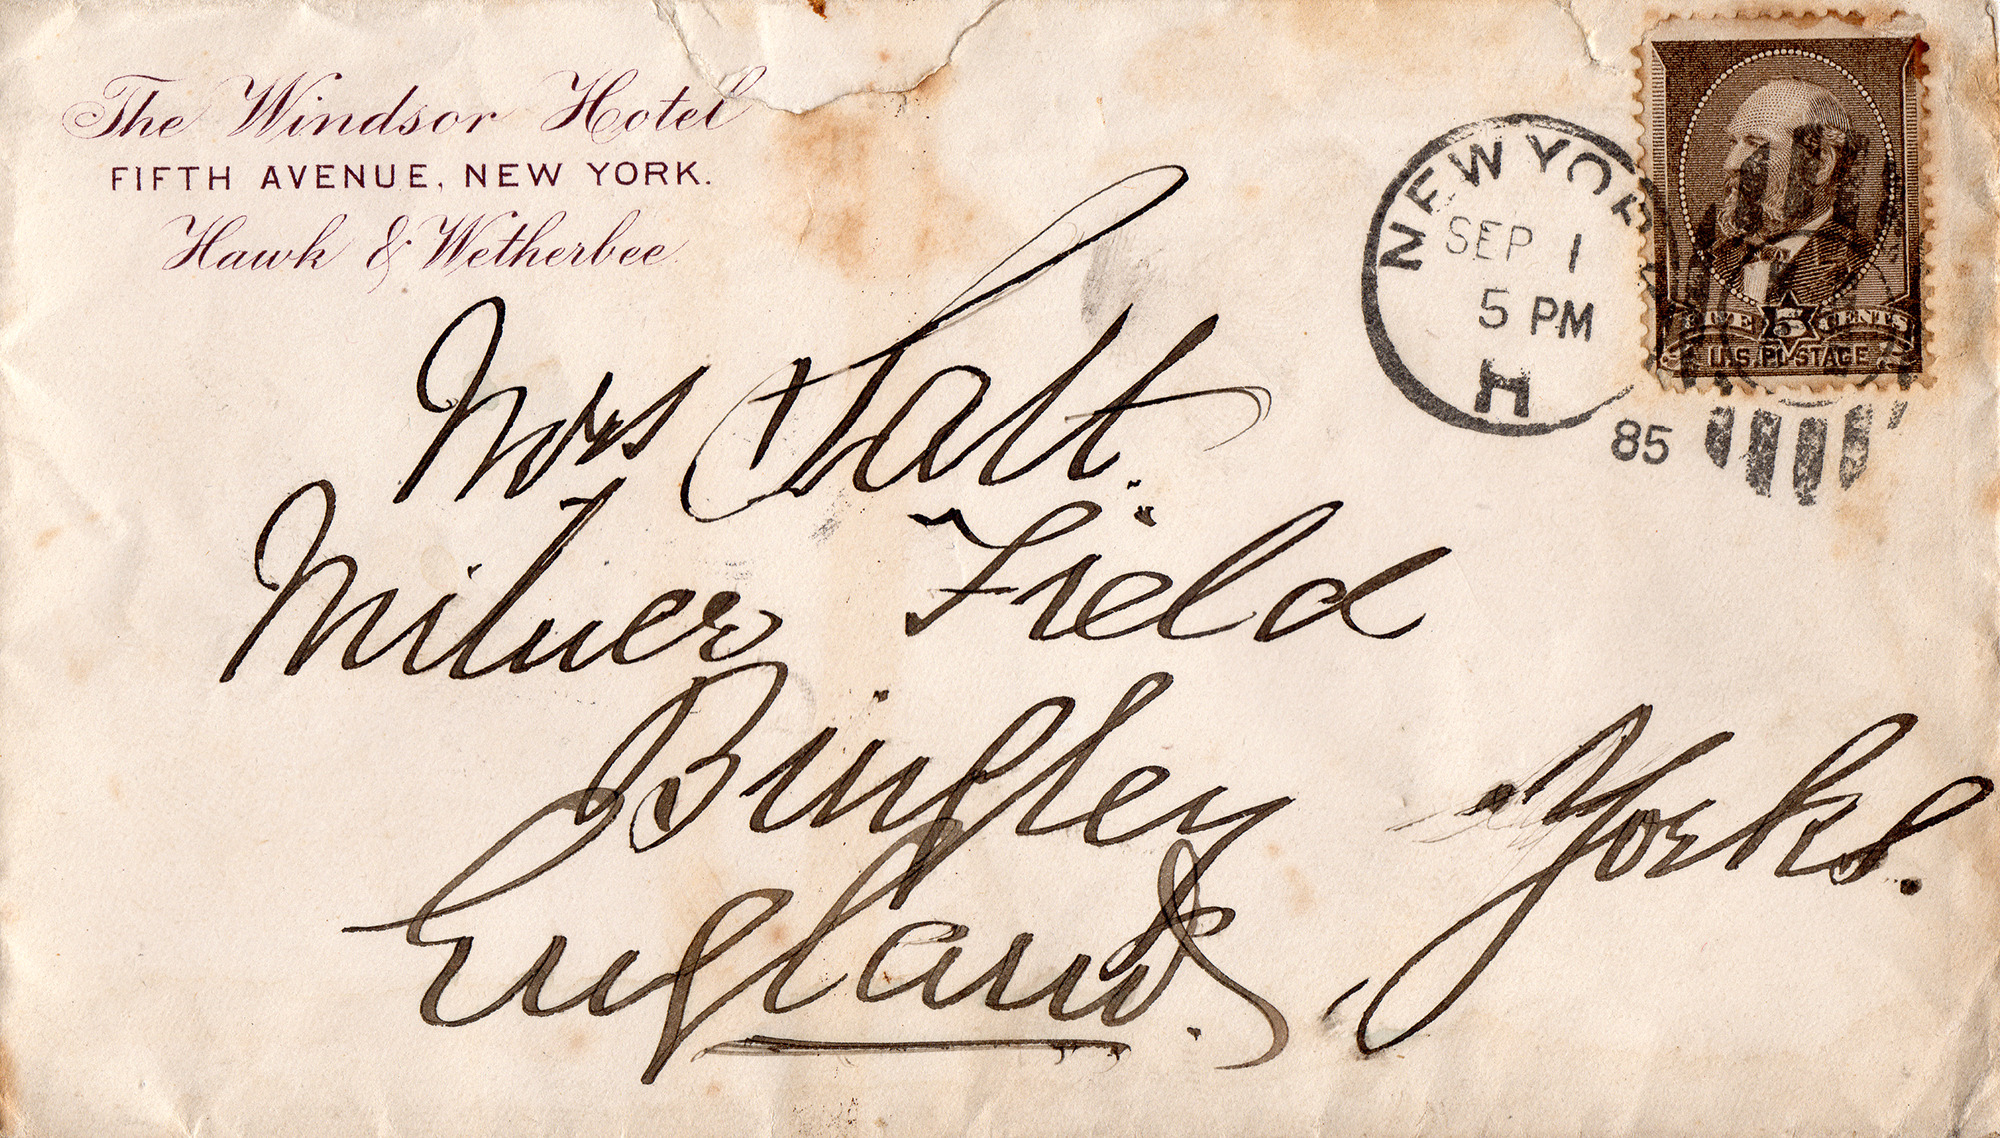 The Windsor Hotel
FIFTH AVENUE, NEW YORK.
Hawk & Wetherbee
NEW YORK
SEP 1
5 PM
H
85
FIVE 5 CENTS
U.S. POSTAGE
Mrs Salt.
Milner Field
Bingley
Yorks.
England.